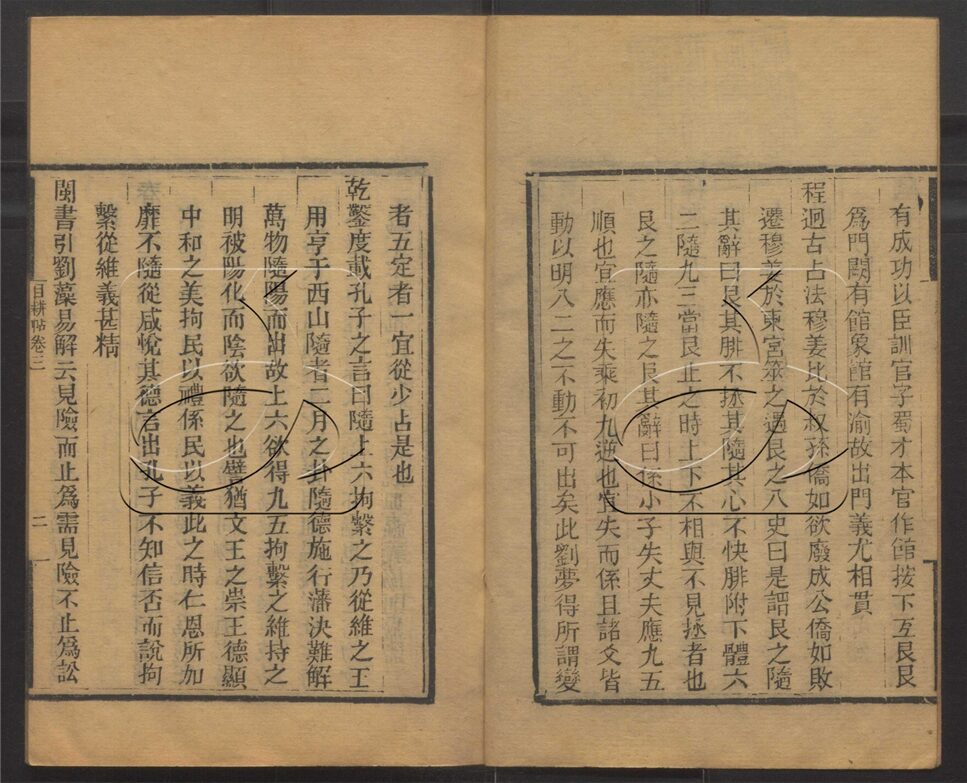 有成功以臣訓官字蜀才本官作館按下互艮艮
爲門闕有館象館有渝故出門義尤相貫
程迥古占法穆姜比於叔孫僑如欲廢成公僑如敗
遷穆姜於東宮筮之遇艮之八史曰是謂艮之隨
其辭曰艮其腓不拯其隨其心不快腓附下體六
二隨九三當艮止之時上下不相與不見拯者也
艮之隨亦隨之艮其辭曰係小子失丈夫應九五
順也宜應而失乘初九逆也宜失而係且諸爻皆
動以明八二之不動不可出矣此劉夢得所謂變
者五定者一宜從少占是也
乾鑿度載孔子之言曰隨上六拘繫之乃從維之王
用亨于西山隨者二月之卦隨德施行藩決難解
萬物隨陽而出故上六欲得九五拘繫之維持之
明被陽化而陰欲隨之也譬猶文王之祟王德顯
中和之美拘民以禮係民以義此之時仁恩所加
靡不隨從咸悅其德言出孔子不知信否而說拘
繫從維義甚精
閩書引劉藻易解云見險而止爲需見險不止爲訟
目耕帖卷三
二